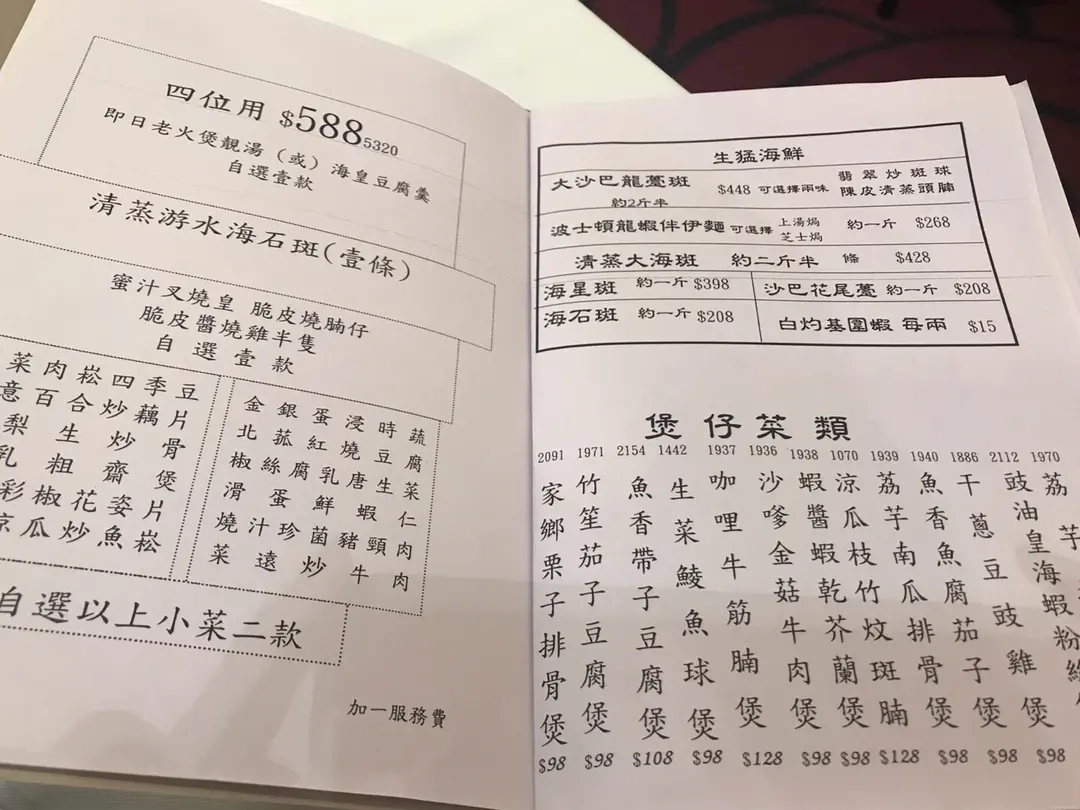 四位用 $588 5320
即日老火煲靚湯（或）海皇豆腐羹
自選壹款
清蒸游水海石斑(壹條)
蜜汁叉燒皇 脆皮燒腩仔
脆皮醬燒雞半隻
自選壹款
菜肉崧四季豆
意百合炒藕片
梨生炒骨
乳粗齋煲
彩椒花姿片
涼瓜炒魚崧
金銀蛋浸時蔬
北菰紅燒豆腐
椒絲腐乳唐生菜
滑蛋鮮蝦仁
燒汁珍菌豬頸肉
菜遠炒牛肉
自選以上小菜二款
加一服務費
生猛海鮮
大沙巴龍躉斑 約2斤半 $448 可選擇兩味 翡翠炒斑球 陳皮清蒸頭腩
波士頓龍蝦伴伊麵 可選擇 上湯焗 芝士焗 約一斤 $268
清蒸大海斑 約二斤半 條 $428
海星斑 約一斤 $398 沙巴花尾躉 約一斤 $208
海石斑 約一斤 $208 白灼基圍蝦 每兩 $15
煲仔菜類
2091 家鄉栗子排骨煲 $98
1971 竹笙茄子豆腐煲 $98
2154 魚香帶子豆腐煲 $108
1442 生菜鯪魚球煲 $98
1937 咖哩牛筋腩煲 $128
1936 沙嗲金菇牛肉煲 $98
1938 蝦醬蝦乾芥蘭煲 $98
1070 涼瓜枝竹炆斑腩 $128
1939 荔芋南瓜排骨煲 $98
1940 魚香魚腐茄子煲 $98
1886 干蔥豆豉雞煲 $98
2112 豉油皇海蝦粉絲
1970 荔芋